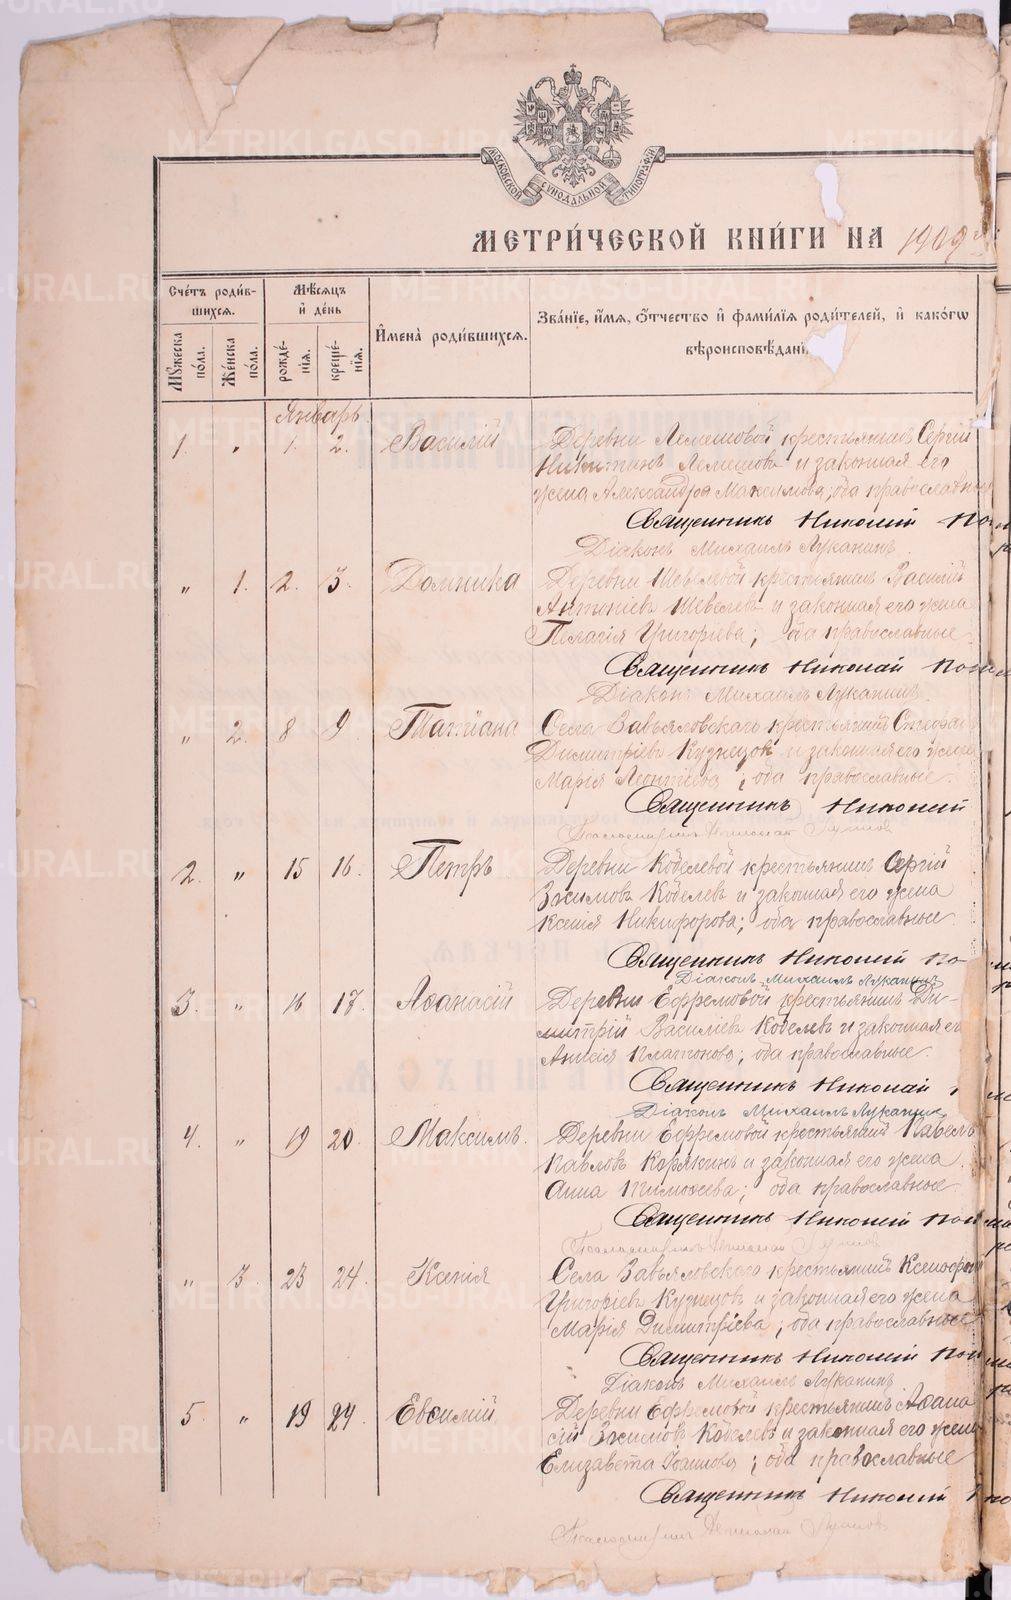 МОСКОВСКОЙ СѴНОДАЛЬНОЙ ТИПОГРАФІИ
МЕТРИ́ЧЕСКОЙ КНИ́ГИ НА 1909
Сче́тъ роди́в-
шихся.
Мꙋжеска по́ла.
Же́нска по́ла.
Мѣ́сяцъ
и҆ де́нь
рожде́-
нїя.
креще́-
нїя.
И҆мена̀ роди́вшихся.
Зва́нїе, и҆́мя, ѻ҆́тчество и҆ фами́лїя роди́телей, и҆ како́гѡ
вѣроисповѣ́данї
Январь.
1. " 1. 2. Василій Деревни Лемешовой крестьянинъ Сергій
Никитинъ Лемешовъ и законная его
жена Александра Максимова; оба православные
Священникъ Николай
Діаконъ Михаилъ Луканинъ.
" 1. 2. 3. Домника Деревни Шевелевой крестьянинъ Василій
Антоніевъ Шевелевъ и законная его жена
Пелагія Григоріева; оба православные
Священникъ Николай
Діаконъ Михаилъ Луканинъ.
" 2. 8 9. Татіана Села Завьяловскаго крестьянинъ
Димитріевъ Кузнецовъ и законная его жена
Марія Леонтіева; оба православные.
Священникъ Николай
Псаломщикъ
2. " 15 16. Петръ Деревни Кобелевой крестьянинъ Сергій
Зосимовъ Кобелевъ и законная его жена
Ксенія Никифорова; оба православные
Священникъ Николай
Діаконъ Михаилъ Луканинъ
3. " 16 17. Аѳанасій Деревни Ефремовой крестьянинъ Ди-
митрій Василіевъ Кобелевъ и законная его
Анисія Платонова; оба православные.
Священникъ Николай
Діаконъ Михаилъ Луканинъ
4. " 19 20. Максимъ. Деревни Ефремовой крестьянинъ Павелъ
Павловъ Корякинъ и законная его жена
Анна Тимоѳеева; оба православные
Священникъ Николай
Псаломщикъ
" 3. 23 24. Ксенія Села Завьяловскаго крестьянинъ Ксенофонтъ
Григоріевъ Кузнецовъ и законная его жена
Марія Димитріева; оба православные
Священникъ Николай
Діаконъ Михаилъ Луканинъ
5. " 19 24. Евѳимій. Деревни Ефремовой крестьянинъ Аѳана
сій Зосимовъ Кобелевъ и законная его жена
Елизавета Іоаннова; оба православные
Священникъ Николай
Псаломщикъ
METRIKI.GASO-URAL.RU